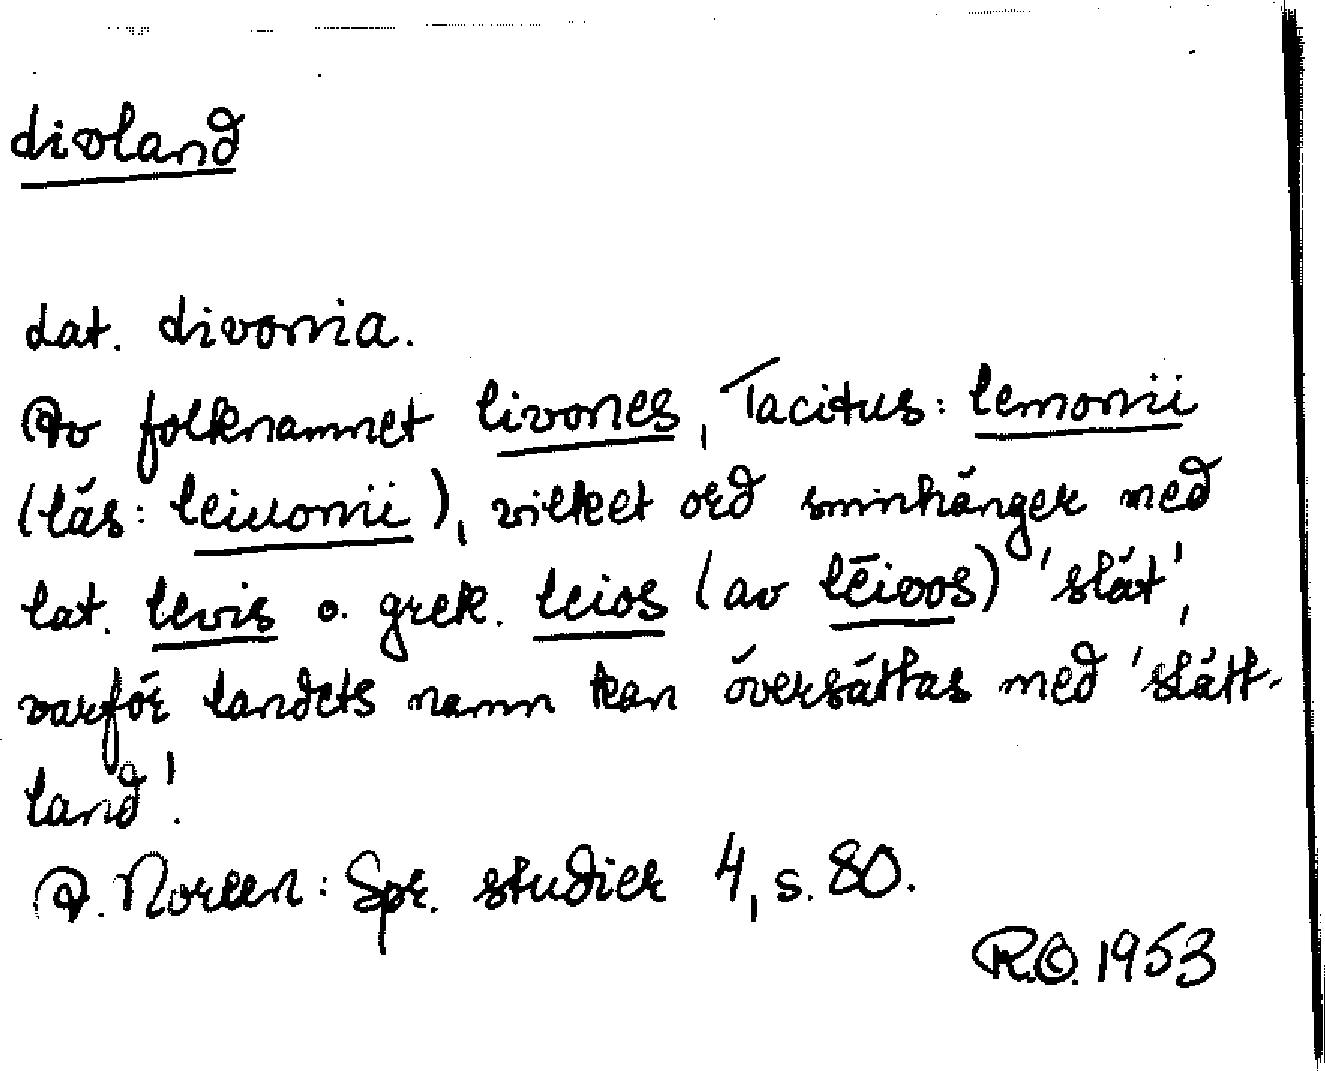 Livland
Lat. Livonia.
Av folknamnet livones, Tacitus: lemonii
(läs: leiuonii), vilket ord sminhänger med
lat. levis o. grek. leios (av lēivos) 'slät',
varför landets namn kan översättas med 'slätt-
land'.
A. Noreen: Spr. studier 4, s. 80.
R.O. 1953